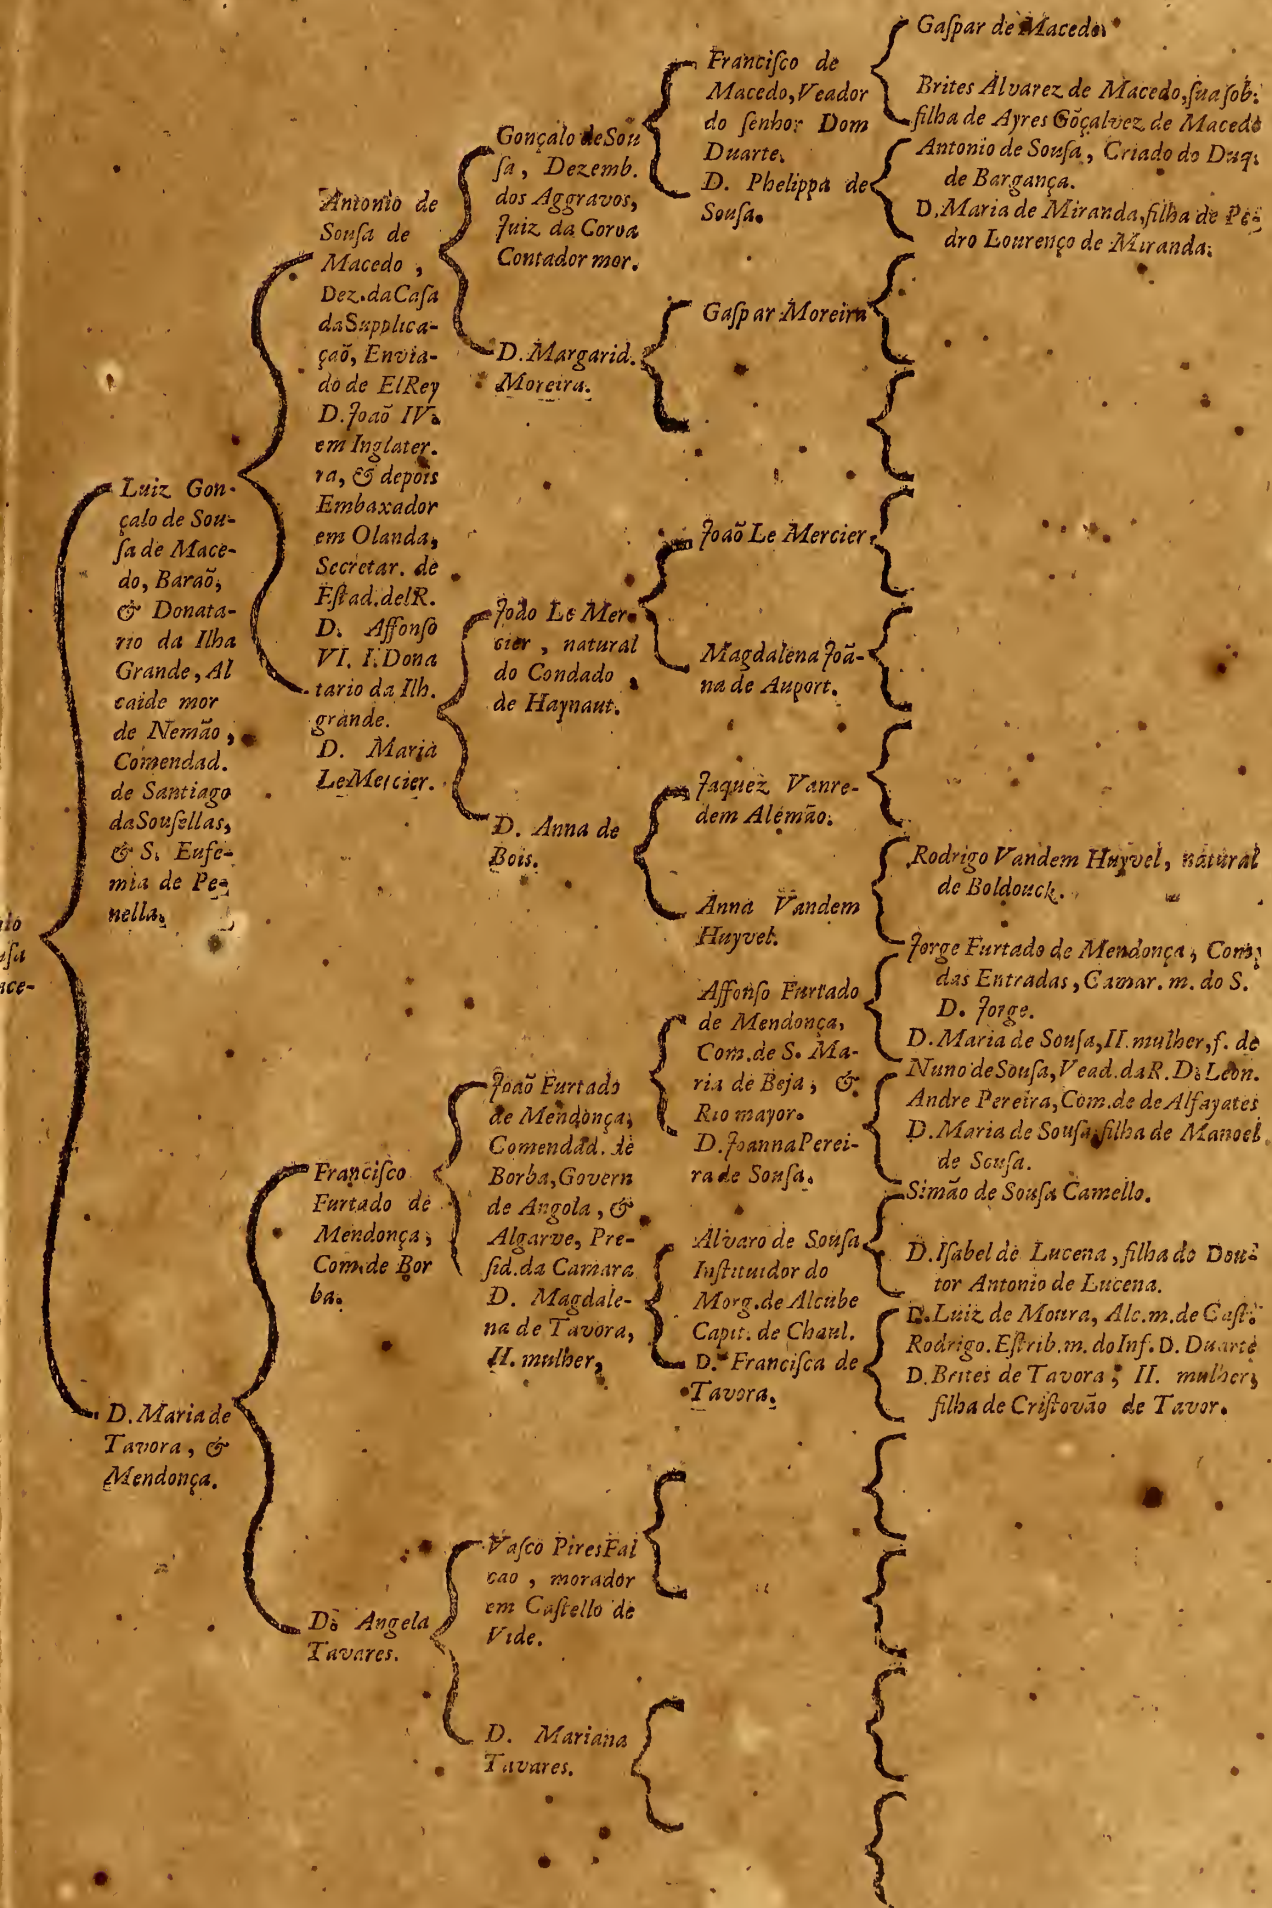 Luiz Gon-
çalo de Sou-
ſa de Mace-
do, Baraõ,
& Donata-
rio da Ilha
Grande, Al
caide mor
de Nemão,
Comendad.
de Santiago
da Souſellas,
& S. Eufe-
mia de Pe-
nella.
D. Maria de
Tavora, &
Mendonça.
Antonio de
Souſa de
Macedo,
Dez. da Caſa
da Supplica-
çaõ, Envia-
do de ElRey
D. Joaõ IV.
em Inglater.
ra, & depois
Embaxador
em Olanda,
Secretar. de
Eſtad. delR.
D. Affonſo
VI. I. Dona
tario da Ilh.
grande.
D. Maria
Le Mercier.
Franciſco
Furtado de
Mendonça,
Com. de Bor
ba.
D. Angela
Tavares.
Gonçalo de Sou
ſa, Dezemb.
dos Aggravos,
Juiz da Coroa
Contador mor.
D. Margarid.
Moreira.
João Le Mer-
cier, natural
do Condado
de Haynaut.
D. Anna de
Bois.
Joaõ Furtado
de Mendonça,
Comendad. de
Borba, Govern
de Angola, &
Algarve, Pre-
ſid. da Camara
D. Magdale-
na de Tavora,
II. mulher,
Vaſco Pires Fal
cao, morador
em Caſtello de
Vide.
D. Mariana
Tavares.
Franciſco de
Macedo, Veador
do ſenhor Dom
Duarte.
D. Phelippa de
Souſa.
Gaſpar Moreira
Joaõ Le Mercier,
Magdalena Joã-
na de Auport.
Jaquez Vanre-
dem Alemão.
Anna Vandem
Huyvel.
Affonſo Furtado
de Mendonça,
Com. de S. Ma-
ria de Beja, &
Rio mayor.
D. Joanna Perei-
ra de Souſa.
Alvaro de Souſa
Inſtituidor do
Morg. de Alcube
Capit. de Chaul.
D. Franciſca de
Tavora.
Gaſpar de Macedo.
Brites Alvarez de Macedo, ſua ſob.
filha de Ayres Gõçalvez de Macedo
Antonio de Souſa, Criado do Duq.
de Bargança.
D. Maria de Miranda, filha de Pe-
dro Lourenço de Miranda.
Rodrigo Vandem Huyvel, natural
de Boldouck.
Jorge Furtado de Mendonça, Com.
das Entradas, Camar. m. do S.
D. Jorge.
D. Maria de Souſa, II. mulher, f. de
Nuno de Souſa, Vead. da R. D. Leon.
Andre Pereira, Com. de de Alfayates
D. Maria de Souſa, filha de Manoel
de Souſa.
Simão de Souſa Camello.
D. Iſabel de Lucena, filha do Dou-
tor Antonio de Lucena.
D. Luiz de Moura, Alc. m. de Caſt.
Rodrigo. Eſtrib. m. do Inf. D. Duarte
D. Brites de Tavora, II. mulher,
filha de Criſtovão de Tavor.